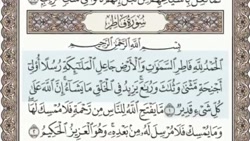 سُورَةُ فَاطِرٍ
بِسْمِ اللَّهِ الرَّحْمَٰنِ الرَّحِيمِ
الْحَمْدُ لِلَّهِ فَاطِرِ السَّمَاوَاتِ وَالْأَرْضِ جَاعِلِ الْمَلَائِكَةِ رُسُلًا أُولِي
أَجْنِحَةٍ مَثْنَىٰ وَثُلَاثَ وَرُبَاعَ يَزِيدُ فِي الْخَلْقِ مَا يَشَاءُ إِنَّ اللَّهَ عَلَىٰ
كُلِّ شَيْءٍ قَدِيرٌ ١ مَا يَفْتَحِ اللَّهُ لِلنَّاسِ مِنْ رَحْمَةٍ فَلَا مُمْسِكَ لَهَا
وَمَا يُمْسِكْ فَلَا مُرْسِلَ لَهُ مِنْ بَعْدِهِ وَهُوَ الْعَزِيزُ الْحَكِيمُ ٢